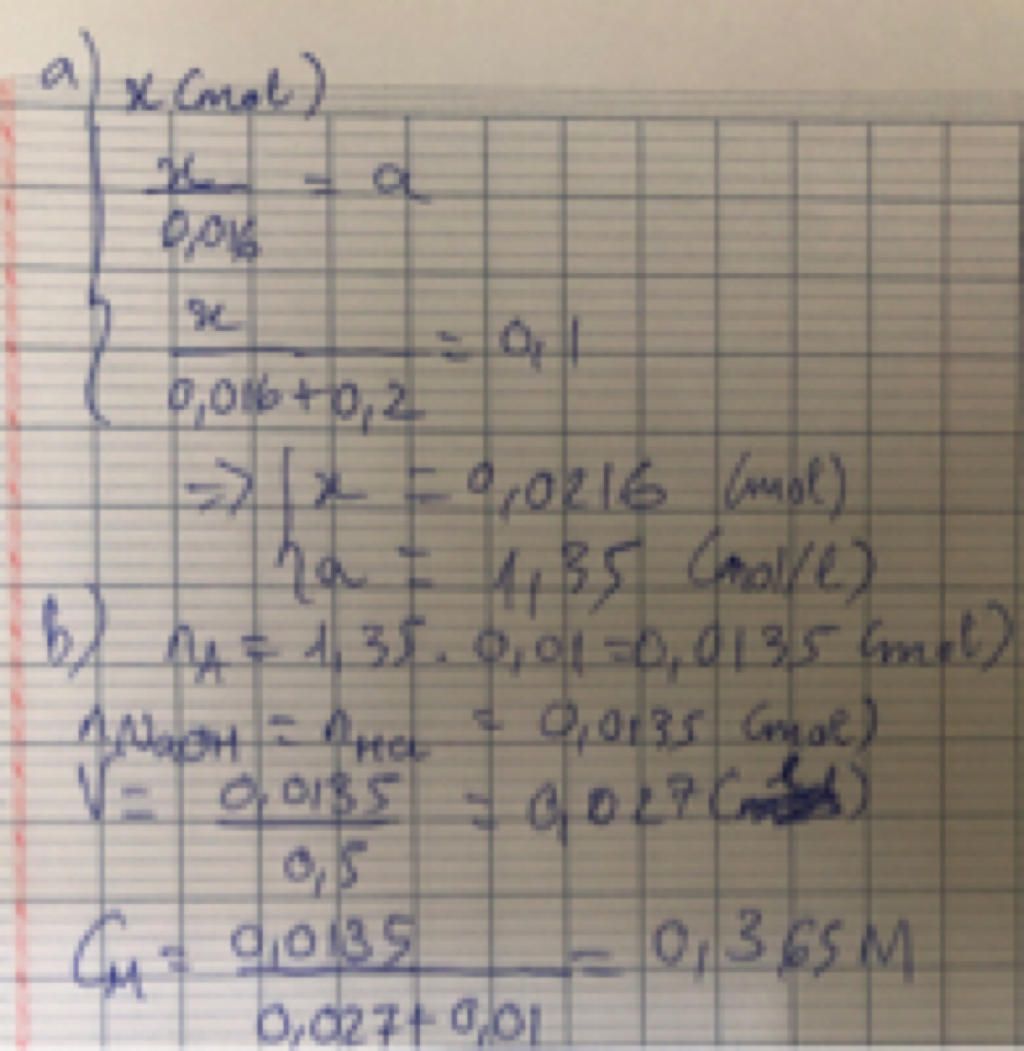 a) x (mol)
x / 0,016 = a
x / (0,016 + 0,2) = 0,1
=> { x = 0,0216 (mol)
a = 1,35 (mol/l)
b) nA = 1,35 . 0,01 = 0,0135 (mol)
nNaOH = nHCl = 0,0135 (mol)
V = 0,0135 / 0,5 = 0,027 (l)
CM = 0,0135 / (0,027 + 0,01) = 0,365 M